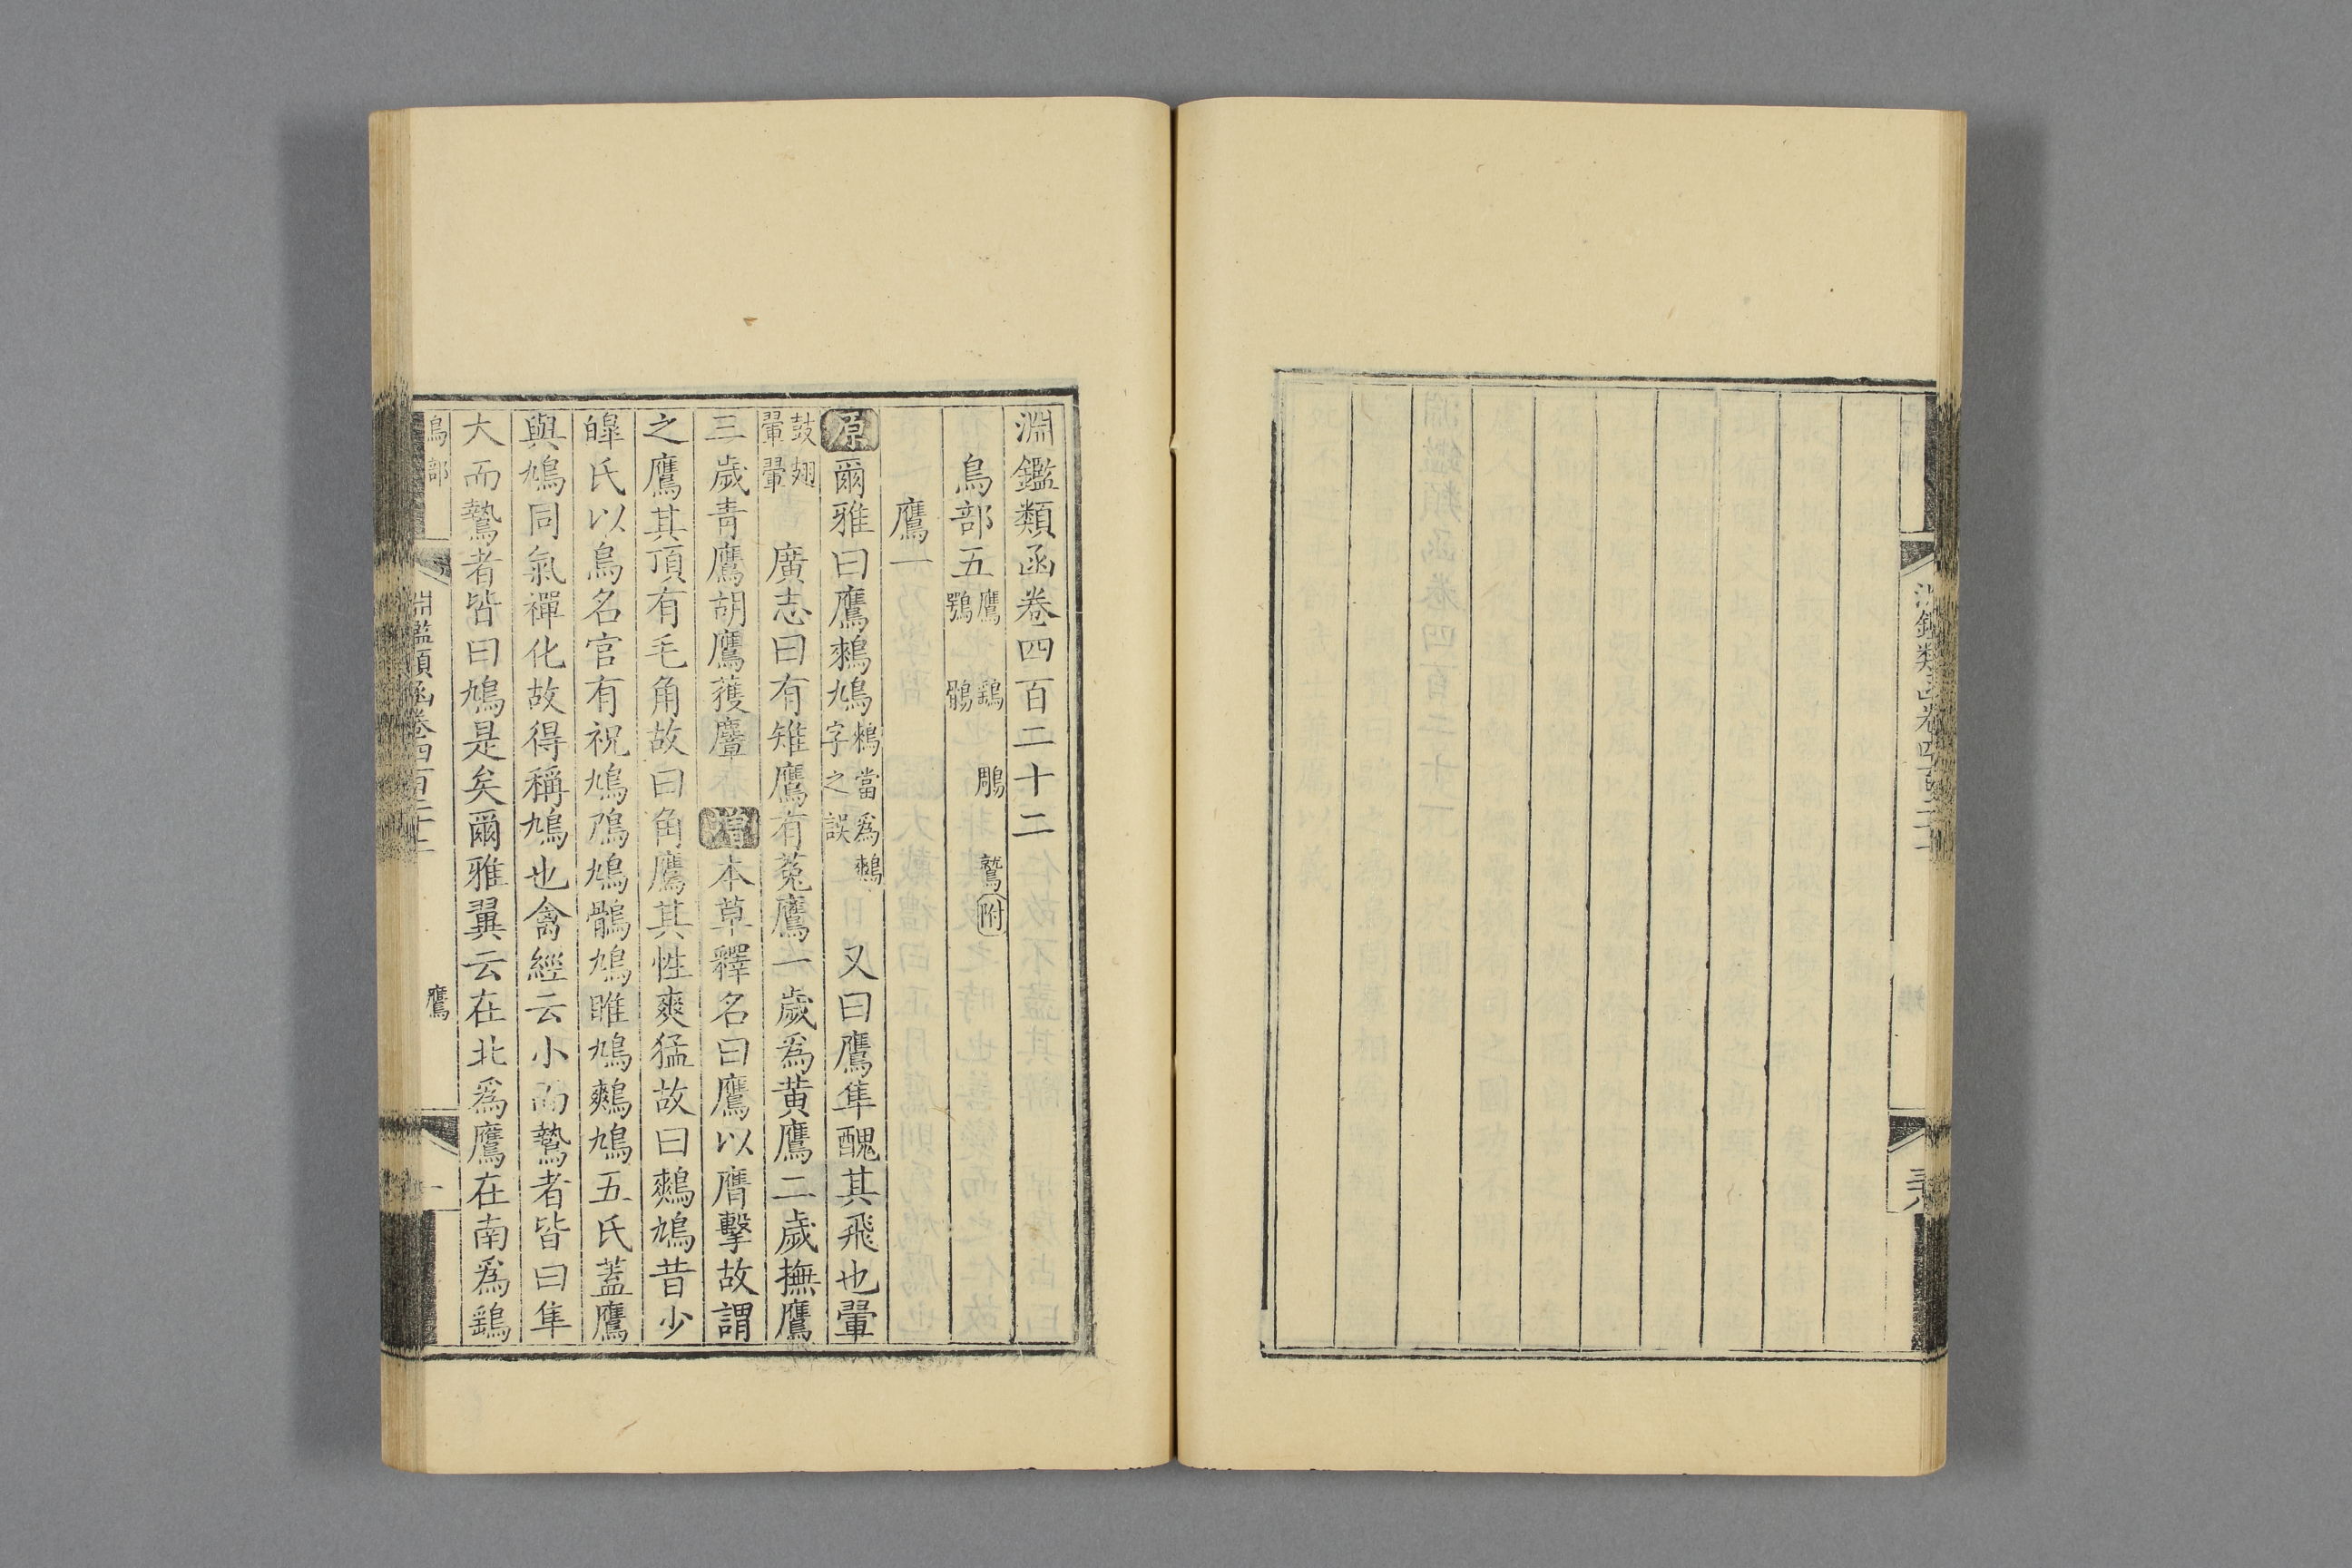 淵鑑類函卷四百二十二
鳥部五 鷹 鷂 鵰 鷲附 鶚 鶻
鷹一
原爾雅曰鷹鶆鳩鶆當為鷞字之誤 又曰鷹隼醜其飛也翬
鼓翅翬翬 廣志曰有雉鷹有菟鷹一歲為黃鷹二歲撫鷹
三歲青鷹胡鷹獲麞 增本草釋名曰鷹以膺擊故謂
之鷹其頂有毛角故曰角鷹其性爽猛故曰鷞鳩昔少
皥氏以鳥名官有祝鳩鳲鳩鶻鳩睢鳩鷞鳩五氏蓋鷹
與鳩同氣禪化故得稱鳩也禽經云小而鷙者皆曰隼
大而鷙者皆曰鳩是矣爾雅翼云在北為鷹在南為鷂
鳥部 淵鑑類函卷四百二十二 鷹 一